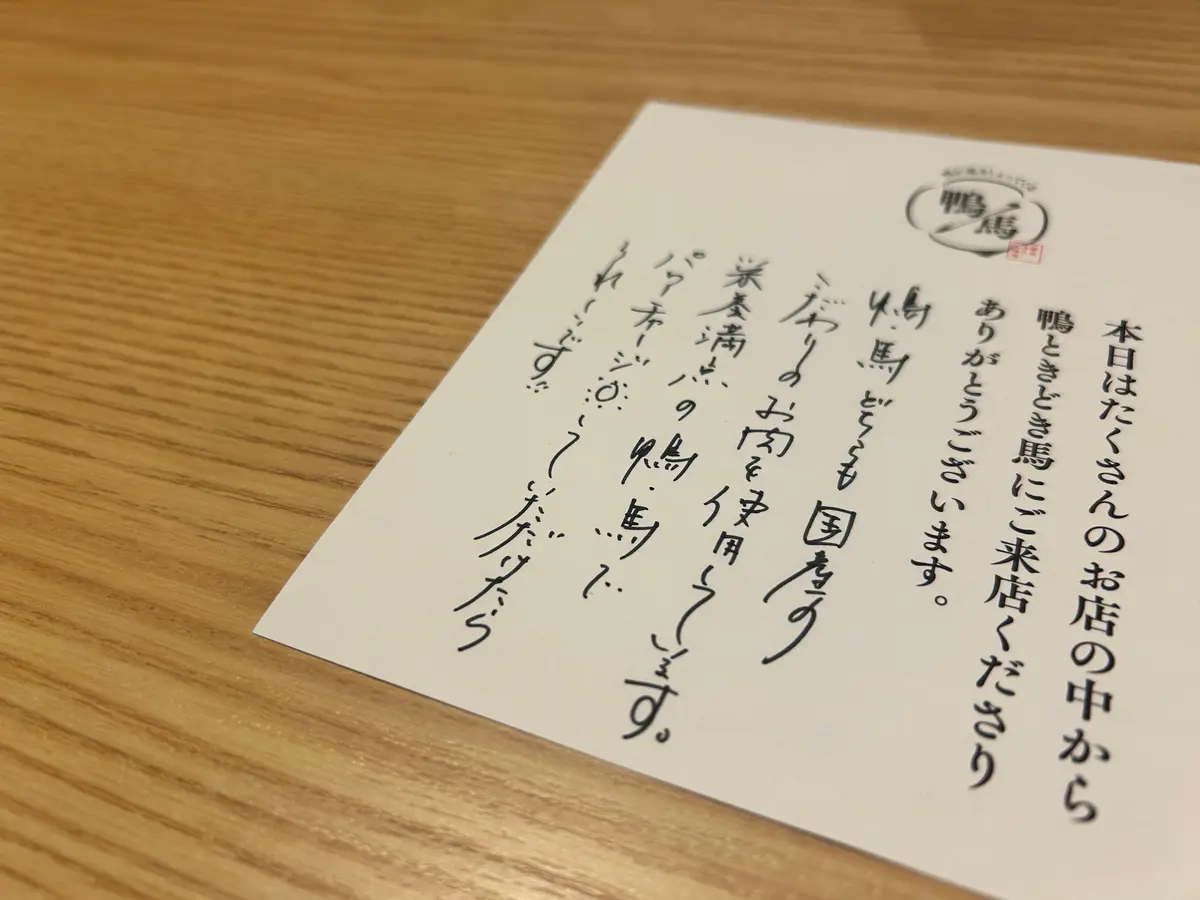 鴨馬
本日はたくさんのお店の中から
鴨ときどき馬にご来店くださり
ありがとうございます。
鴨・馬どちらも国産の
こだわりのお肉を使用しています。
栄養満点の鴨・馬で
パワーチャージしていただけたら
うれしいです